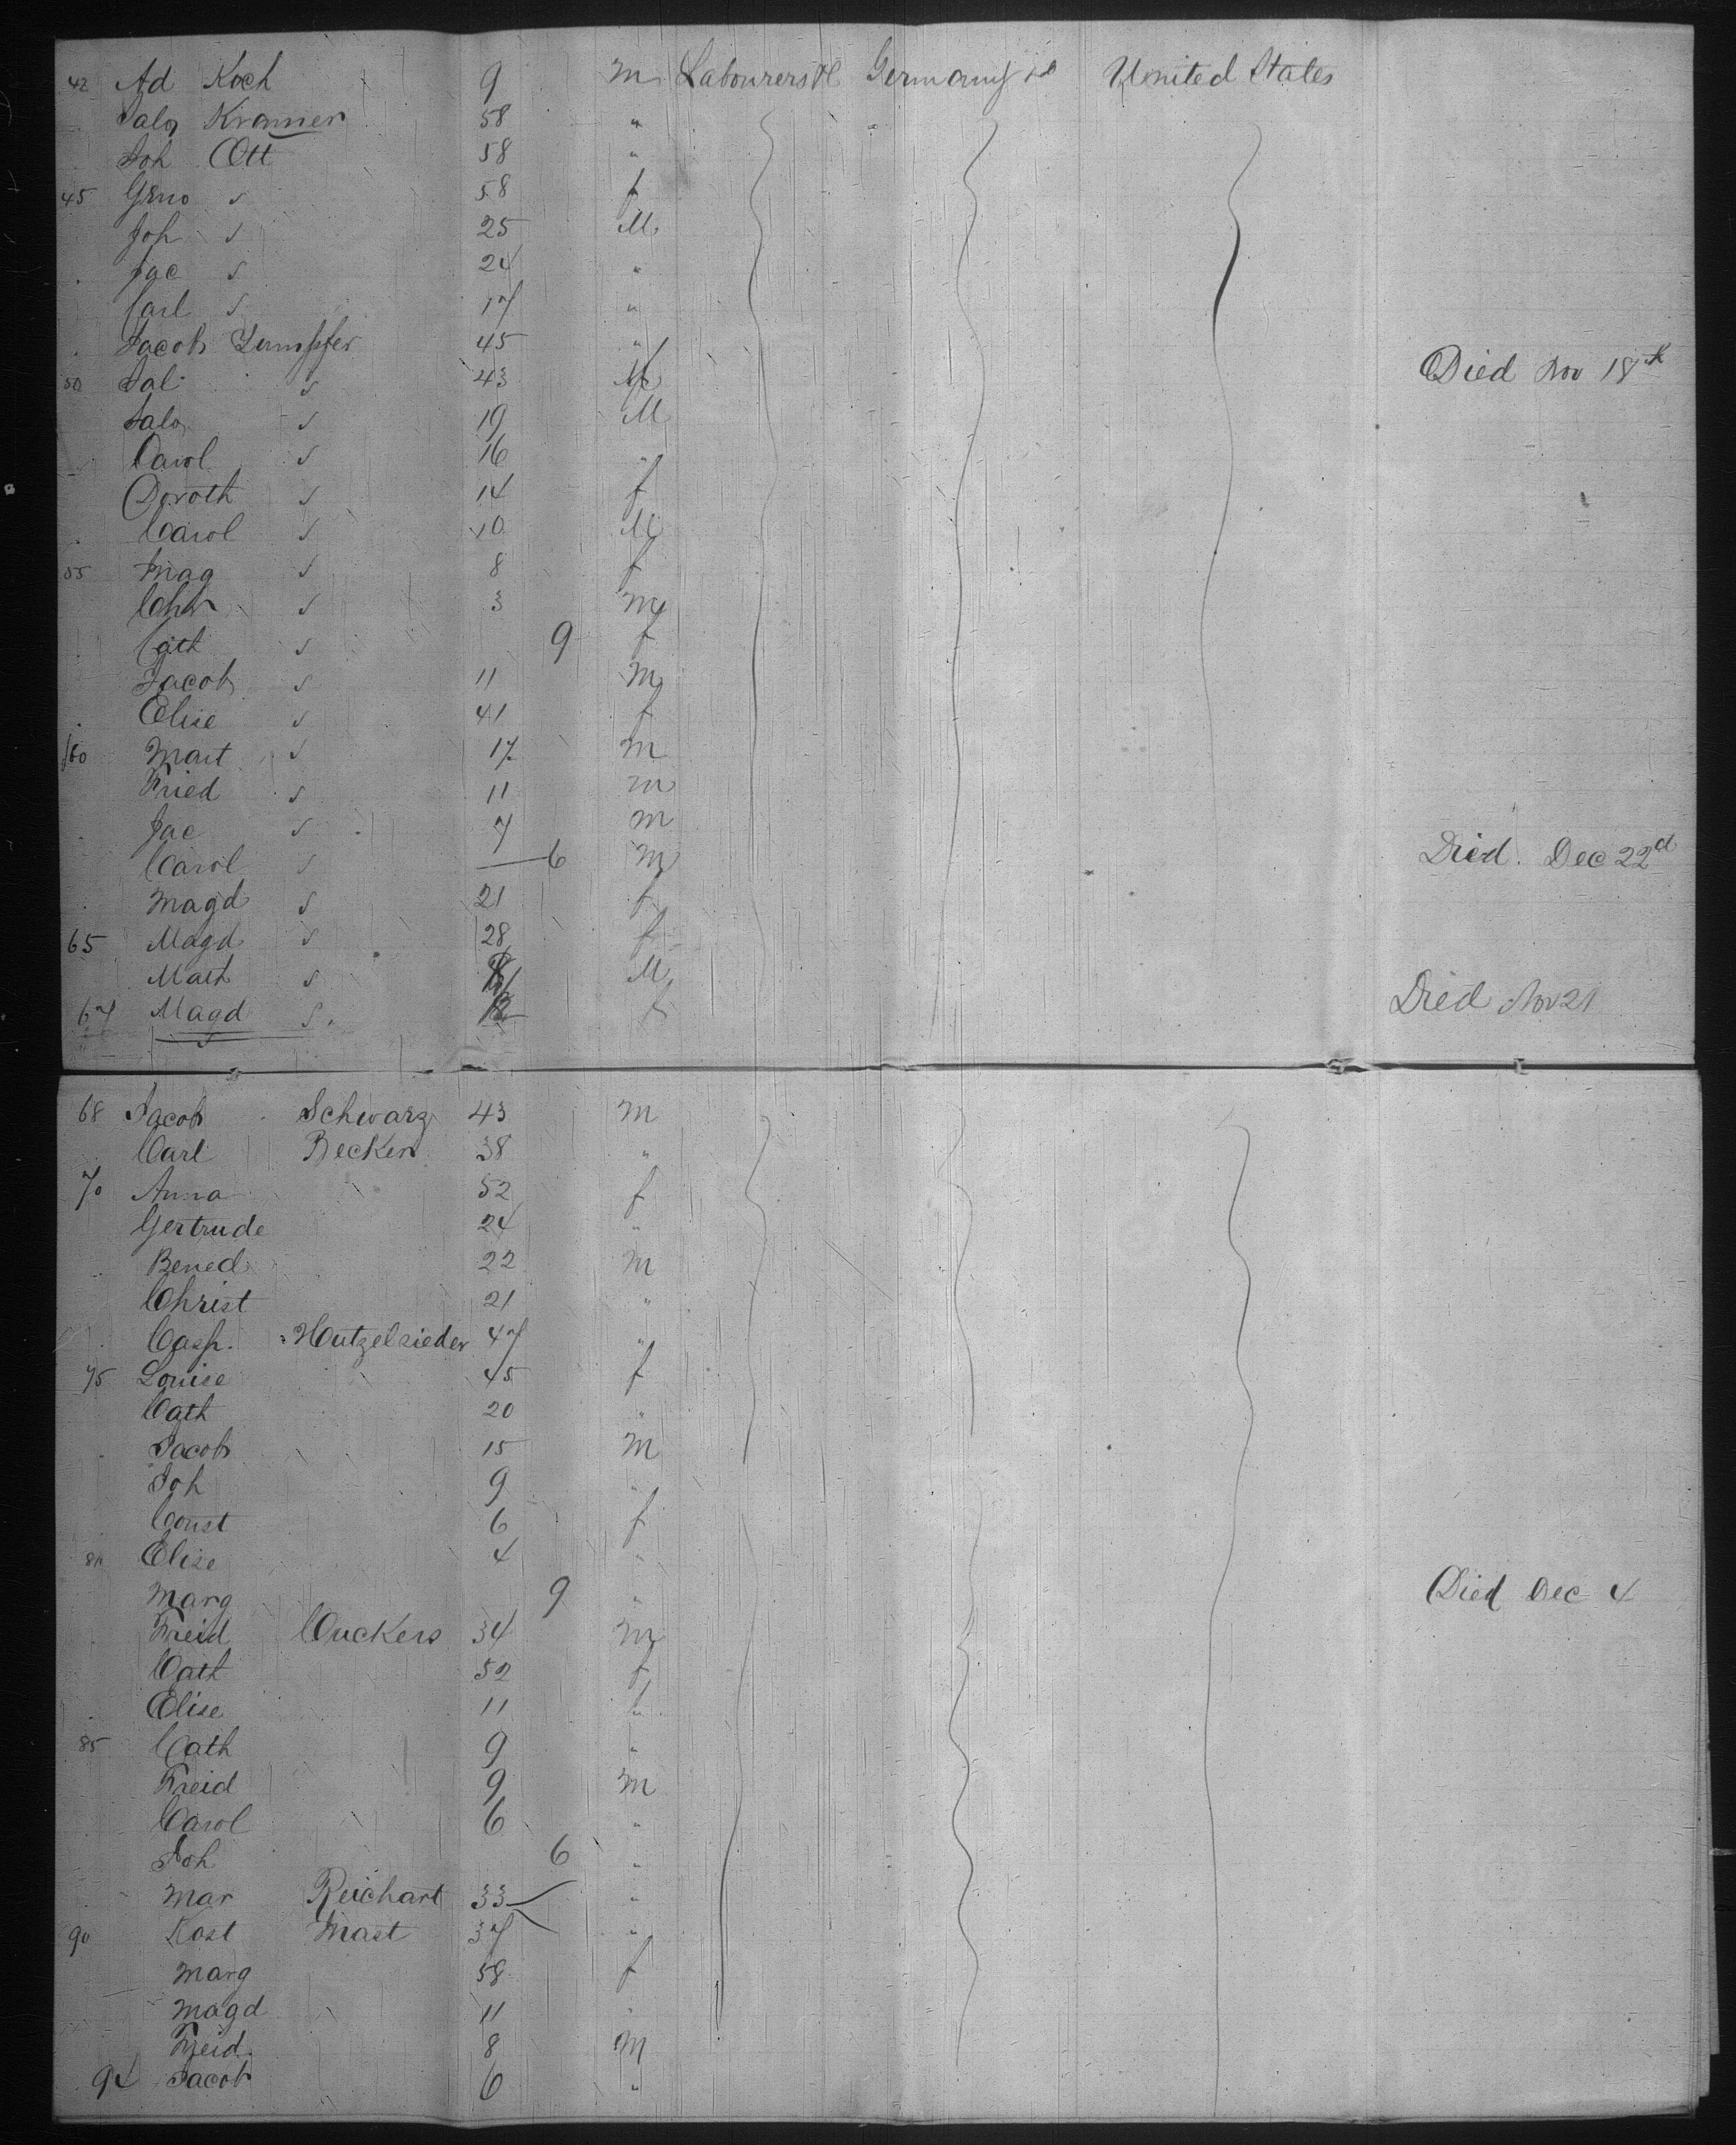 42 Ad Koch 9 m Labourers &c Germany United States
Salo Kramer 58 "
Joh Ott 58 "
45 s 58 f
Joh s 25 M
Jac s 24 "
Carl s 17 "
Jacob 45 "
50 Sal s 43 Died Nov 18th
Salo s 19 M
Carol s 16 "
Doroth s 14 f
Carol s 10 M
55 Mag s 8 f
Chr s 3 m
Cath s 9 f
Jacob s 11 m
Elise s 41 f
60 Mart s 17 m
Fried s 11 m
Jac s 7 m
Carol s 6 m Died. Dec 22d
Magd s 21 f
65 Magd s 28 f
Math s M
67 Magd s. f Died Nov 21
68 Jacob Schwarz 43 m
Carl Becker 38 "
70 Anna 52 f
Gertrude 24 "
Bened 22 m
Christ 21 "
Casp. Hutzelsieder 47 "
75 Louise 45 f
Cath 20 "
Jacob 15 m
Joh 9 "
Const 6 f
80 Elise 4 "
Marg 9 " Died Dec 4
Freid Cuckers 34 m
Cath 52 f
Elise 11 "
85 Cath 9 "
Freid 9 m
Carol 6 "
Joh 6 "
Mar Reichart 33 "
90 Kost Mast 37 "
Marg 58 f
Magd 11 "
Freid. 8 M
94 Jacob 6 "